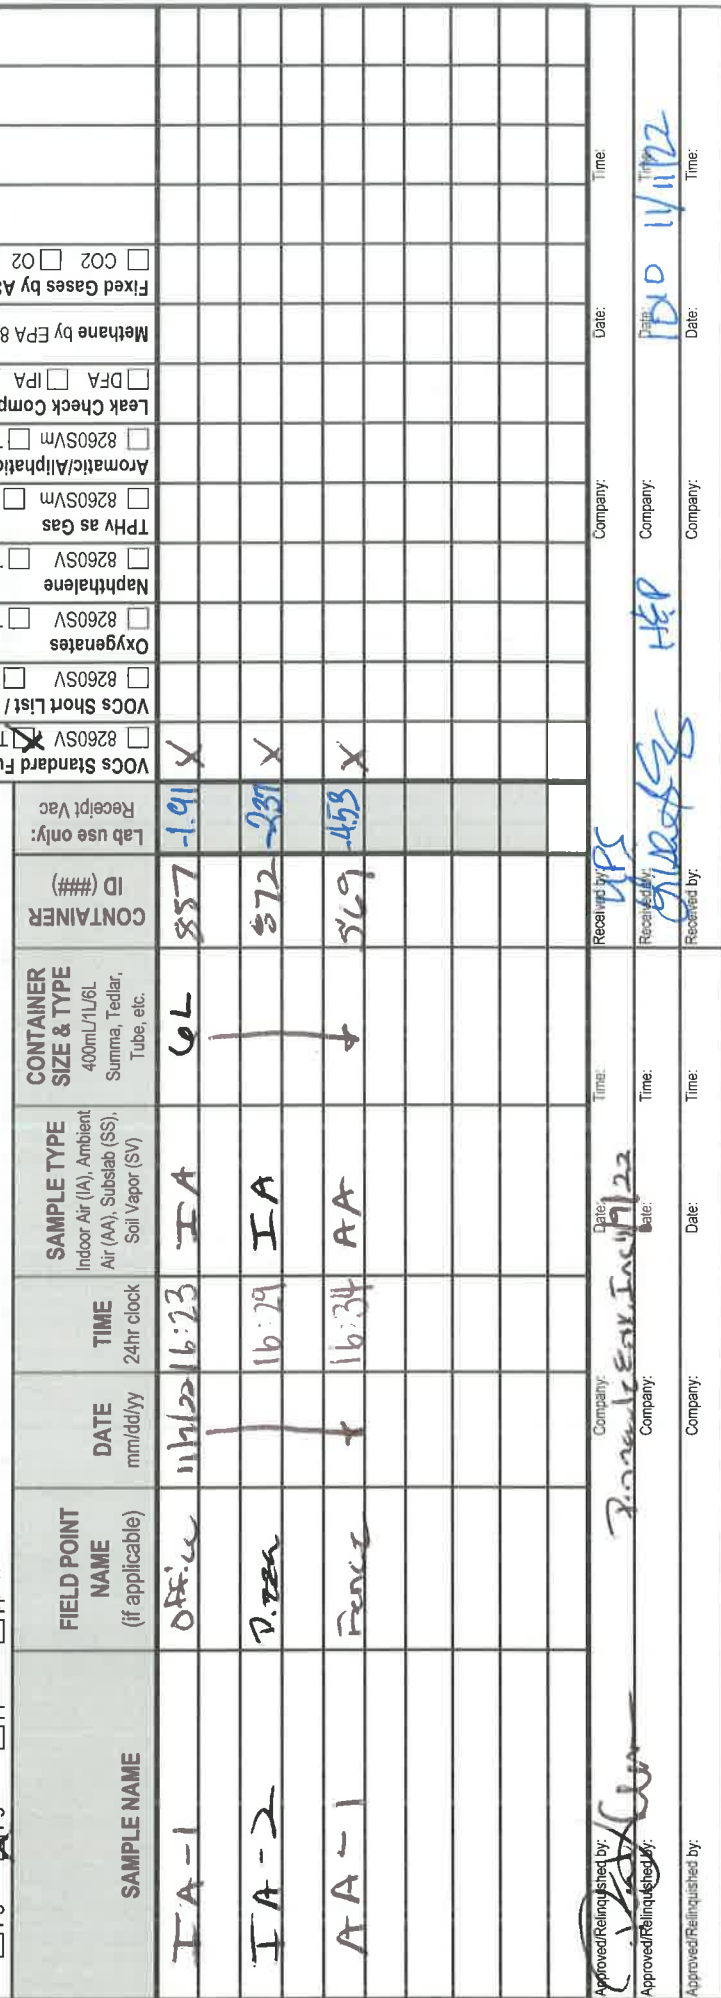 SAMPLE NAME
FIELD POINT NAME (if applicable)
DATE mm/dd/yy
TIME 24hr clock
SAMPLE TYPE Indoor Air (IA), Ambient Air (AA), Subslab (SS), Soil Vapor (SV)
CONTAINER SIZE & TYPE 400mL/1L/6L Summa, Tedlar, Tube, etc.
CONTAINER ID (###)
Lab use only: Receipt Vac
VOCs Standard Fu
☐ 8260SV
VOCs Short List /
☐ 8260SV
Oxygenates
☐ 8260SV
Naphthalene
☐ 8260SV
TPHv as Gas
☐ 8260SVm
Aromatic/Aliphatic
☐ 8260SVm
Leak Check Comp
☐ DFA ☐ IPA
Methane by EPA 8
Fixed Gases by AS
☐ CO2 ☐ O2
IA-1 Office 16:23 IA 6L 857 -1.91 X
IA-2 Pizza 16:29 IA 572 -2.37 X
AA-1 Fence 16:34 AA 569 -4.53 X
Approved/Relinquished by: Company: Env. Inc Date: 11/9/22 Time: Received by: UPS Company: Date: Time:
Approved/Relinquished by: Company: Date: Time: Received by: H&P Company: Date: 1010 Time: 11/11/22
Approved/Relinquished by: Company: Date: Time: Received by: Company: Date: Time: